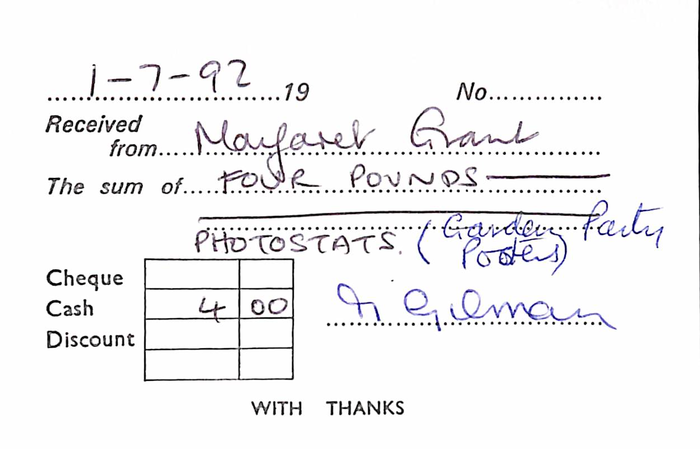 1-7-92 19 No.
Received from Margaret Grant
The sum of FOUR POUNDS
PHOTOSTATS. (Garden Party
Posters)
Cheque
Cash 4 00
Discount
WITH THANKS